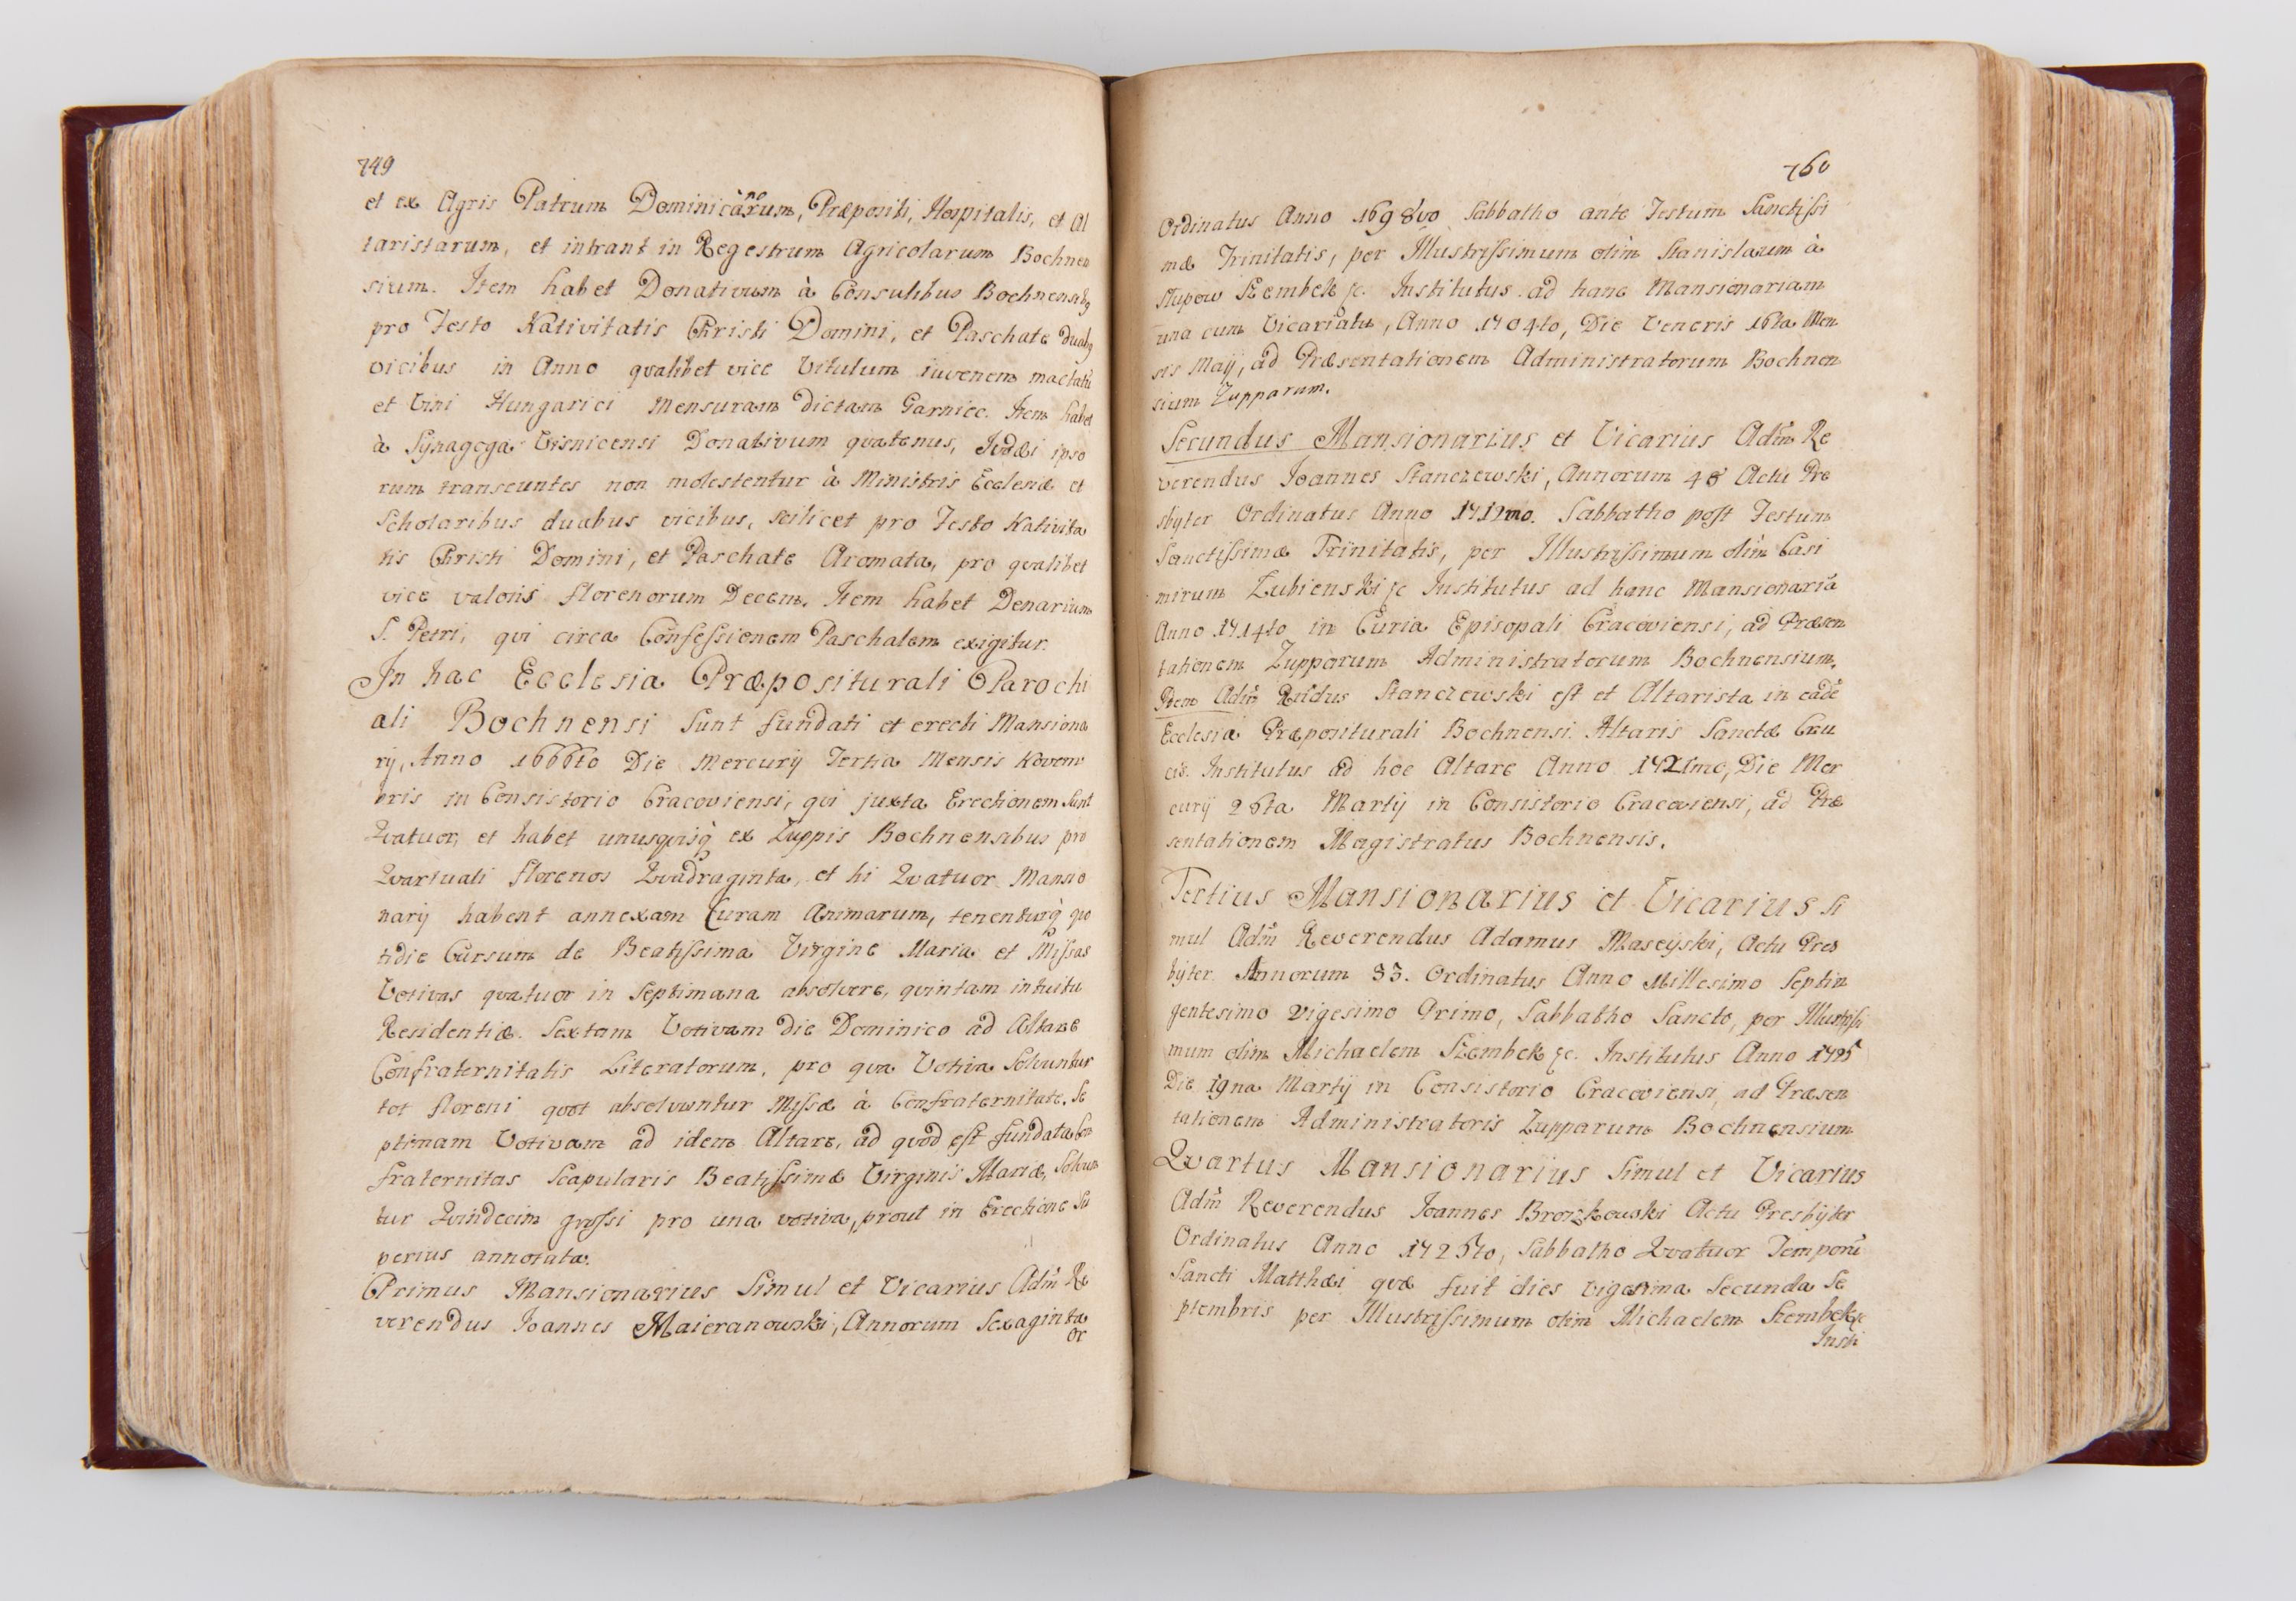 749
et ex Agris Patrum Dominicanorum, Præpositi, Hospitalis, et Al
taristarum, et intrant in Regestrum Agricolarum Bochnen
sium. Item habet Donativum à Consulibus Bochnensibꝫ
pro Festo Nativitatis Christi Domini, et Paschate duabꝫ
vicibus in Anno qvalibet vice Vitulum iuvenem mactatũ
et Vini Hungarici Mensuram dictam Garniec. Item habet
à Synagoga Visnicensi Donativum qvatenus, Judæi ipso
rum transeuntes non molestentur à Ministris Ecclesiæ et
Scholaribus duabus vicibus, scilicet pro Festo Nativita
tis Christi Domini, et Paschate Aromata, pro qvalibet
vice valoris florenorum Decem. Item habet Denarium
S. Petri, qvi circa Confessionem Paschalem exigitur.
In hac Ecclesia Præpositurali Parochi
ali Bochnensi sunt fundati et erecti Mansiona
rij, Anno 1666to Die Mercurij Tertia Mensis Novem
bris in Consistorio Cracoviensi, qvi juxta Erectionem sunt
Qvatuor, et habet unusqvisq̀ ex Zuppis Bochnensibus pro
Qvartuali florenos Qvadraginta, et hi Qvatuor Mansio
narij habent annexam Curam Animarum, tenenturq̀ qvo
tidie Cursum de Beatissima Virgine Maria et Missas
Votivas qvatuor in Septimana absolvere, qvintam intuitu
Residentiæ. Sextam Votivam die Dominico ad Altare
Confraternitatis Literatorum, pro qva Votiva solvuntur
tot floreni qvot absolvuntur Missæ à Confraternitate. Se
ptimam Votivam ad idem Altare, ad qvod est fundata Con
fraternitas Scapularis Beatissimæ Virginis Mariæ, solvun
tur Qvindecim grossi pro una votiva, prout in Erectione Su
perius annotata.
Primus Mansionarius Simul et Vicarius Adm̃ Re
verendus Joannes Maieranowski, Annorum Sexaginta
Or
760
Ordinatus Anno 1698vo Sabbatho ante Festum Sanctissi
mæ Trinitatis, per Illustrissimum olim Stanislaum à
Słupow Szembek &c. Institutus ad hanc Mansionariam
una cum Vicariatu, Anno 1704to, Die Veneris 16ta Men
sis Maij, ad Præsentationem Administratorum Bochnen
sium Zupparum.
Secundus Mansionarius et Vicarius Adm̃ Re
verendus Joannes Stanczewski, Annorum 48 Actu Pre
sbyter Ordinatus Anno 1712mo. Sabbatho post Festum
Sanctissimæ Trinitatis, per Illustrissimum olim Casi
mirum Łubienski &c Institutus ad hanc Mansionariã
Anno 1714to in Curia Episopali Cracoviensi, ad Præsen
tationem Zupparum Administratorum Bochnensium.
Idem Adm̃ Rñdus Stanczewski est et Altarista in eadẽ
Ecclesia Præpositurali Bochnensi. Altaris Sanctæ Cru
cis. Institutus ad hoc Altare Anno 1721mo, Die Mer
curij 26ta Martij in Consistorio Cracoviensi, ad Præ
sentationem Magistratus Bochnensis.
Tertius Mansionarius et Vicarius si
mul Adm̃ Reverendus Adamus Maseyski, Actu Pres
byter Annorum 33. Ordinatus Anno Millesimo Septin
gentesimo Vigesimo Primo, Sabbatho Sancto, per Illustrissi
mum olim Michaelem Szembek &c. Institutus Anno 1725
Die 19na Martij in Consistorio Cracoviensi, ad Præsen
tationem Administratoris Zupparum Bochnensium
Qvartus Mansionarius Simul et Vicarius
Adm̃ Reverendus Joannes Brozkowski Actu Presbyter
Ordinatus Anno 1725to, Sabbatho Qvatuor Temporũ
Sancti Matthæi qvæ fuit dies vigesima Secunda Se
ptembris per Illustrissimum olim Michaelem Szembek &c
Insti